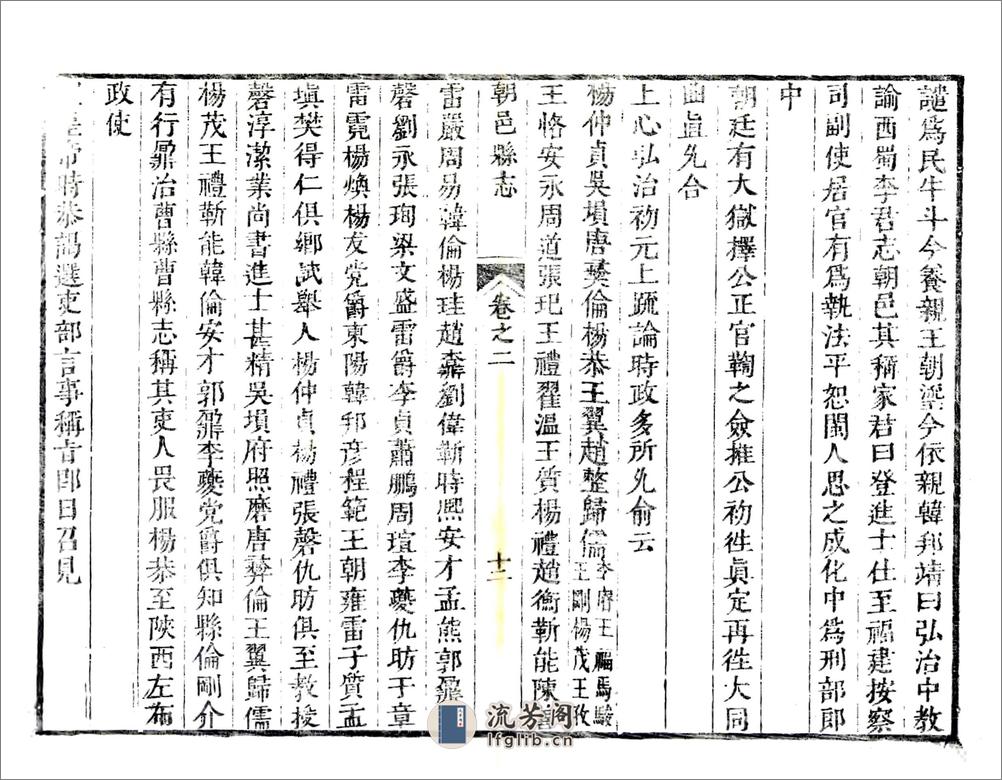 譴為民牛斗今養親王朝㵂今依親韓邦靖曰弘治中教
諭西蜀李君志朝邑其稱家君曰登進士仕至福建按察
司副使居官有為執法平恕閩人思之成化中為刑部郎
中
朝廷有大獄擇公正官鞫之僉推公初徃真定再徃大同
曲直允合
上心弘治初元上䟽論時政多所允俞云
楊仲貞吳塤唐彛倫楊恭王翼趙整歸儒李睿王福馬駿王剛楊茂王孜
王恪安永周道張玘王禮翟溫王質楊禮趙衡靳能陳
朝邑縣志 卷之二 十三
雷嚴周易韓倫楊珪趙鼐劉偉靳時熈安才孟熊郭鼐
馨劉永張珣梁文盛雷爵李貞蕭鵬周瑄李夔仇昉于章
雷霓楊煥楊友党爵東陽韓邦彦程範王朝雍雷子質孟
塡樊得仁俱鄉試舉人楊仲貞楊禮張磬仇昉俱至教授
磬淳潔業尚書進士甚精吳塤府照磨唐彛倫王翼歸儒
楊茂王禮靳能韓倫安才郭鼐李夔党爵俱知縣倫剛介
有行鼐治曹縣曹縣志稱其吏人畏服楊恭至陜西左布
政使
皇帝時恭謁選吏部言事稱旨即日召見
流芳閣
lfglib.cn